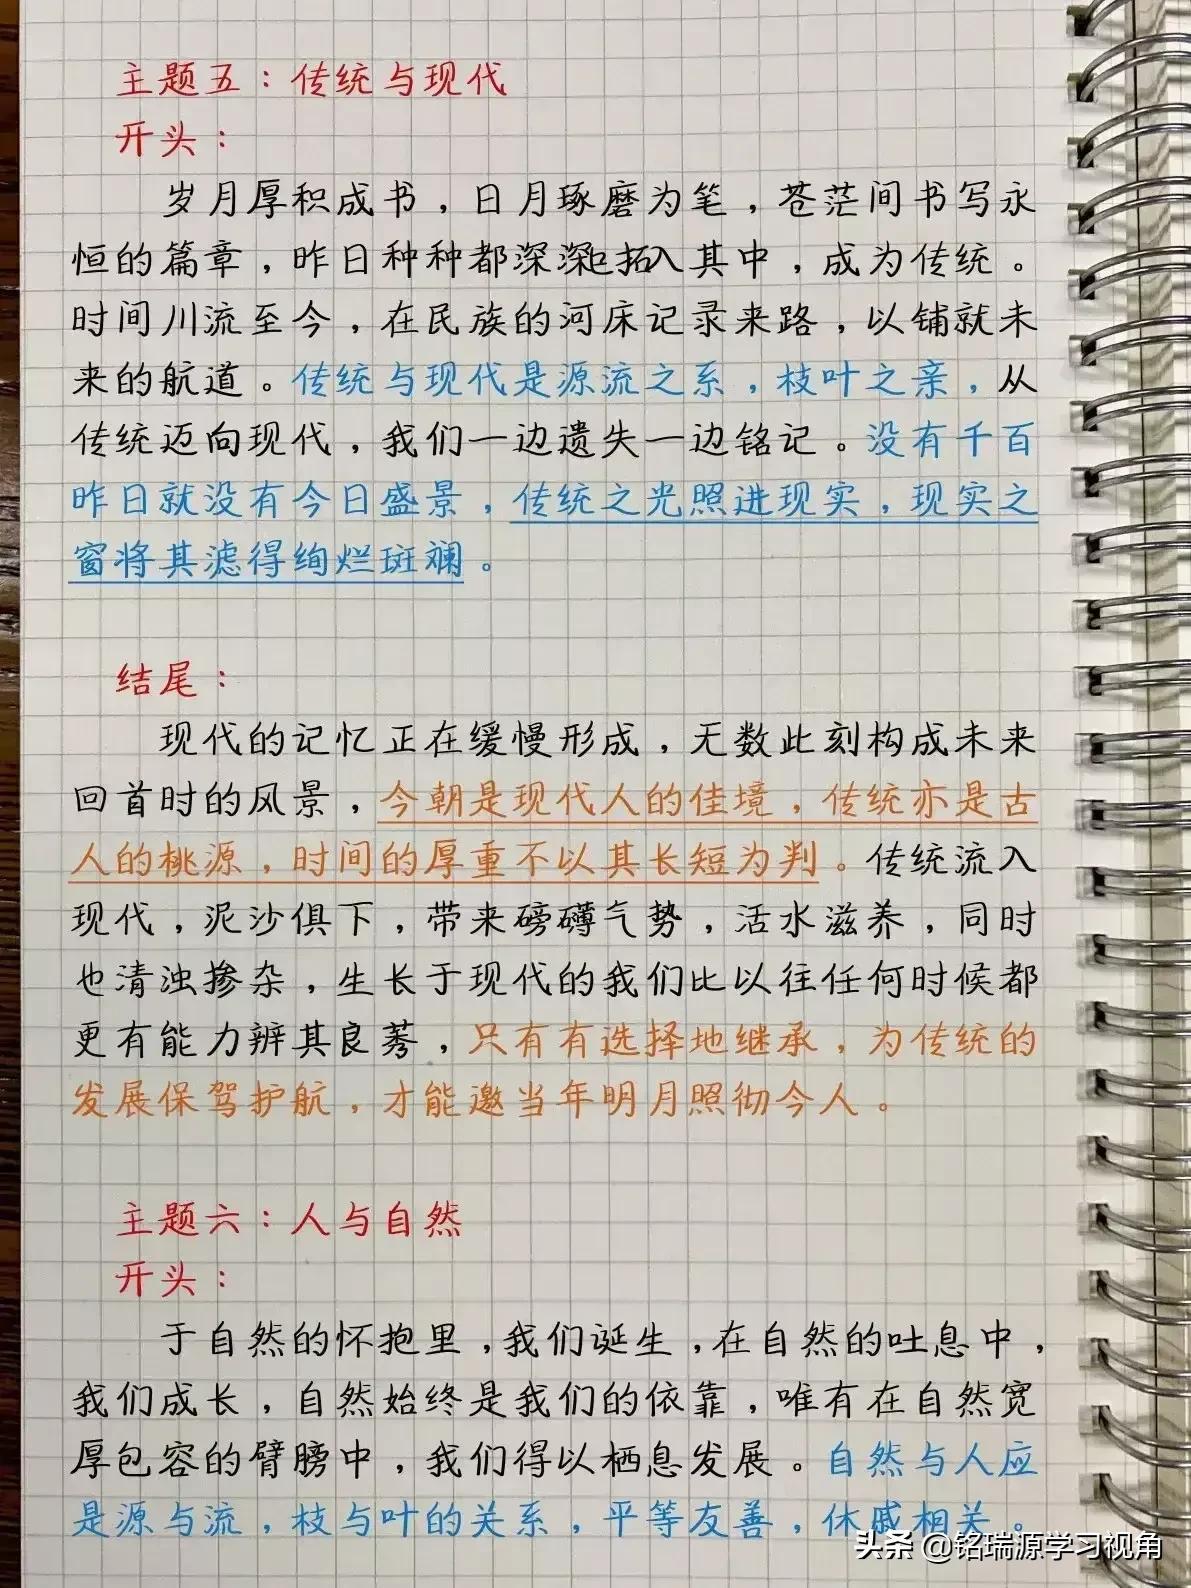 主题五：传统与现代
开头：
岁月厚积成书，日月琢磨为笔，苍茫间书写永
恒的篇章，昨日种种都深深地拓入其中，成为传统。
时间川流至今，在民族的河床记录来路，以铺就未
来的航道。传统与现代是源流之系，枝叶之亲，从
传统迈向现代，我们一边遗失一边铭记。没有千百
昨日就没有今日盛景，传统之光照进现实，现实之
窗将其滤得绚烂斑斓。
结尾：
现代的记忆正在缓慢形成，无数此刻构成未来
回首时的风景，今朝是现代人的佳境，传统亦是古
人的桃源，时间的厚重不以其长短为判。传统流入
现代，泥沙俱下，带来磅礴气势，活水滋养，同时
也清浊掺杂，生长于现代的我们比以往任何时候都
更有能力辨其良莠，只有有选择地继承，为传统的
发展保驾护航，才能邀当年明月照彻今人。
主题六：人与自然
开头：
于自然的怀抱里，我们诞生，在自然的吐息中，
我们成长，自然始终是我们的依靠，唯有在自然宽
厚包容的臂膀中，我们得以栖息发展。自然与人应
是源与流，枝与叶的关系，平等友善，休戚相关。
头条 @铭瑞源学习视角